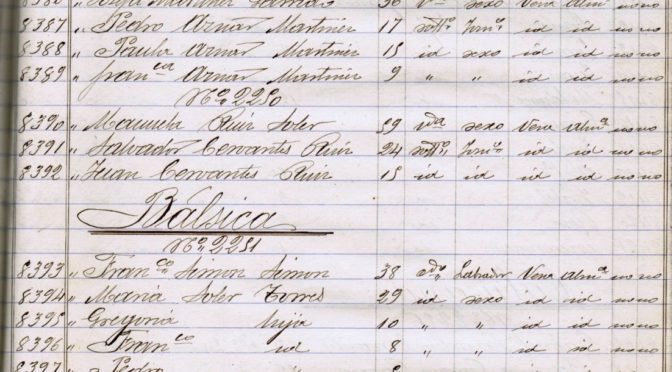 Martinez 36 Va sexo Vera Almª no no
8387 " Pedro Aznar Martinez 17 soltº Jorno id id no no
8388 " Paula Aznar Martinez 15 id sexo id id no no
8389 " Franca Aznar Martinez 9 " " id id no no
Nº 2250
8390 " Manuela Ruiz Soler 59 vda sexo Vera Almª no no
8391 " Salvador Cervantes Ruiz 24 soltº id id no no
8392 " Juan Cervantes Ruiz 15 id id id id no no
Bálsica
Nº 2251
8393 " Franco Simon Simon 38 cdo Labrador Vera Almª no no
8394 " Maria Soler Torres 29 id sexo id id no no
8395 " Gregoria hija 10 " " id id no no
8396 " Franco id 8 " " id id no no
8397 " Pedro